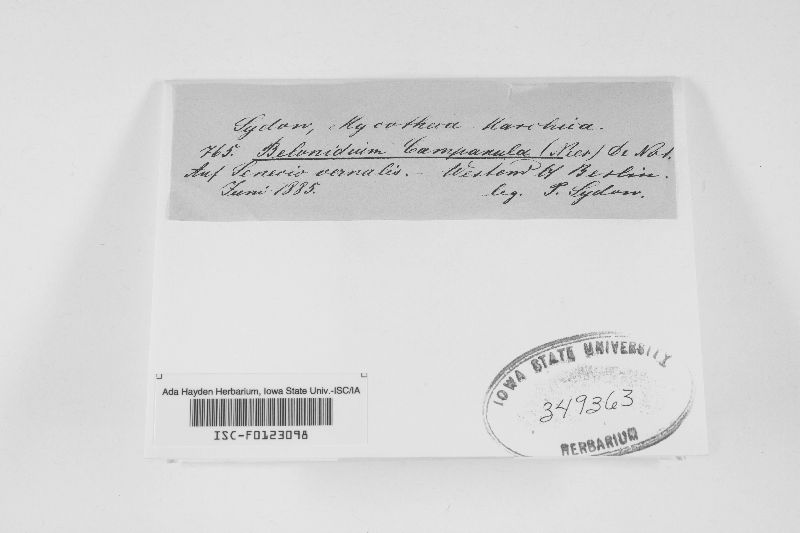 Sydow, Mycotheca Marchica.
765. Belonidium Campanula (Nees) De Not.
Auf Senecio vernalis. - Westend bei Berlin.
Juni 1885. leg. P. Sydow.
IOWA STATE UNIVERSITY
349363
HERBARIUM
Ada Hayden Herbarium, Iowa State Univ.-ISC/IA
ISC-F0123098